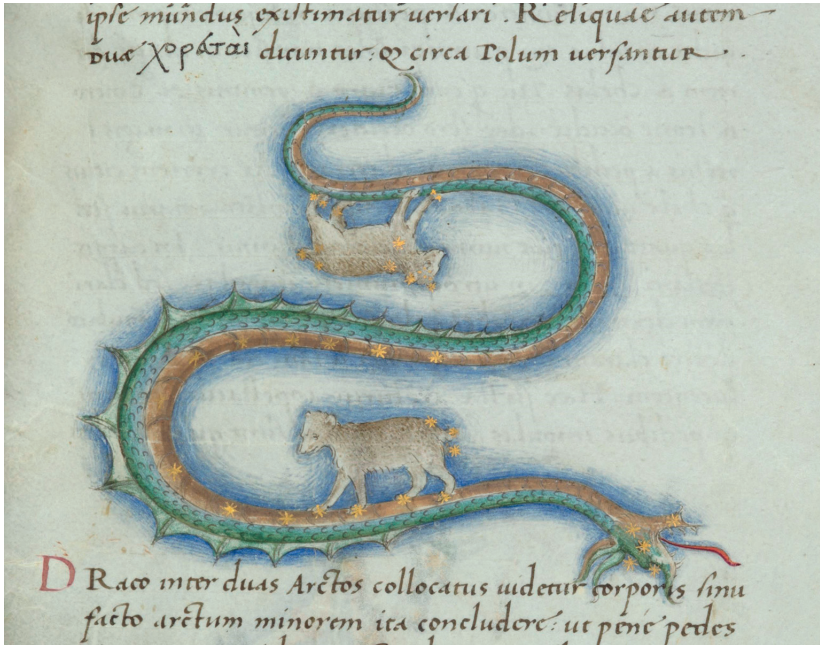 ipse mūndus existimatur versari. Reliquae autem
Duæ χορᾶται dicuntur: Q circa Polum versantur.
DRaco inter duas Arctos collocatus uidetur corporis sinu
facto arctum minorem ita concludere: ut pene pedes